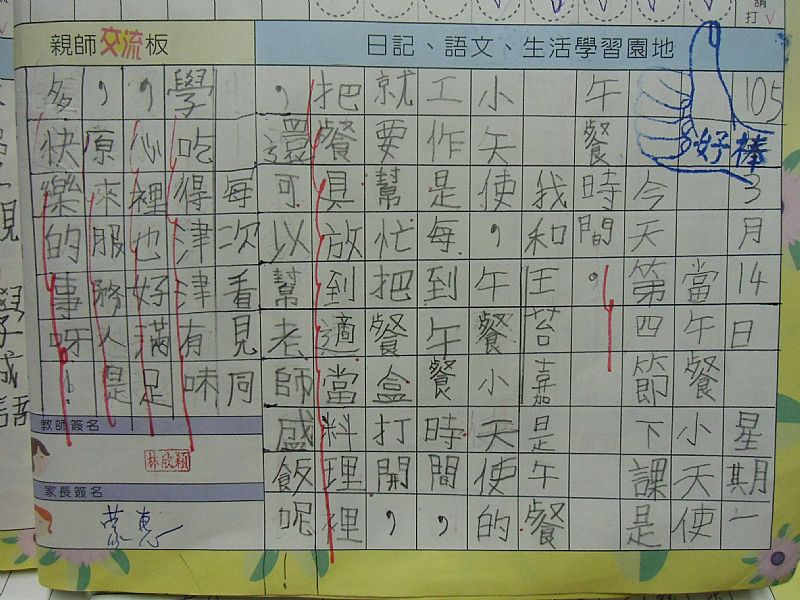 親師交流板
日記、語文、生活學習園地
請打
好棒
105 3月14日 星期一
當午餐小天使
今天第四節下課是
午餐時間。
我和王苔嘉是午餐
小天使，午餐小天使的
工作是每到午餐時間，
就要幫忙把餐盒打開，
把餐具放到適當料理裡
，還可以幫老師盛飯呢！
每次看見同
學吃得津津有味
，心裡也好滿足
，原來服務人是
多快樂的事呀！
教師簽名
林欣穎
家長簽名